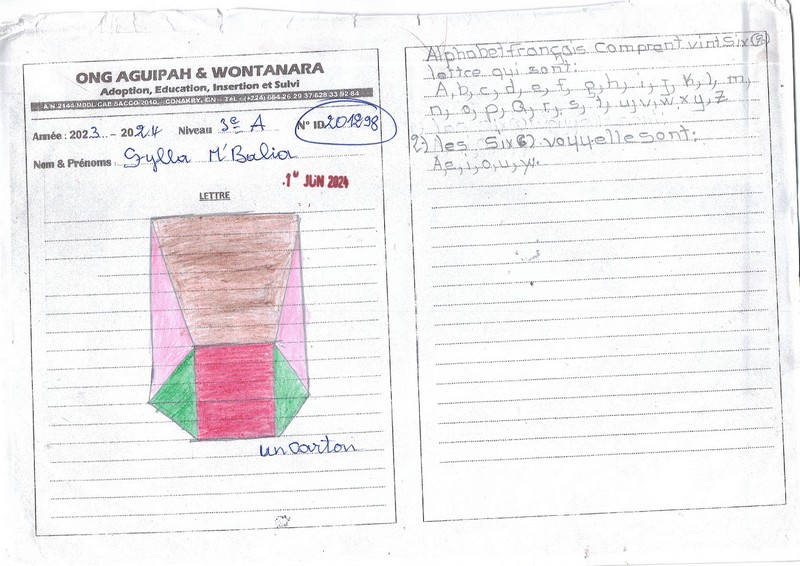 ONG AGUIPAH & WONTANARA
Adoption, Education, Insertion et Suivi
Année : 2023... - 2024 Niveau 3e A N° ID 201298
Nom & Prénoms : Sylla M'Balia
1er JUIN 2024
LETTRE
un carton
Alphabet français Comprent vint six (26)
lettre qui sont:
A, b, c, d, e, f, g, h, i, j, K, l, m,
n, o, p, Q, r, s, t, u, v, w, x y, Z
2) les six 6) voyuelle sont:
A, e, i, o, u, y.